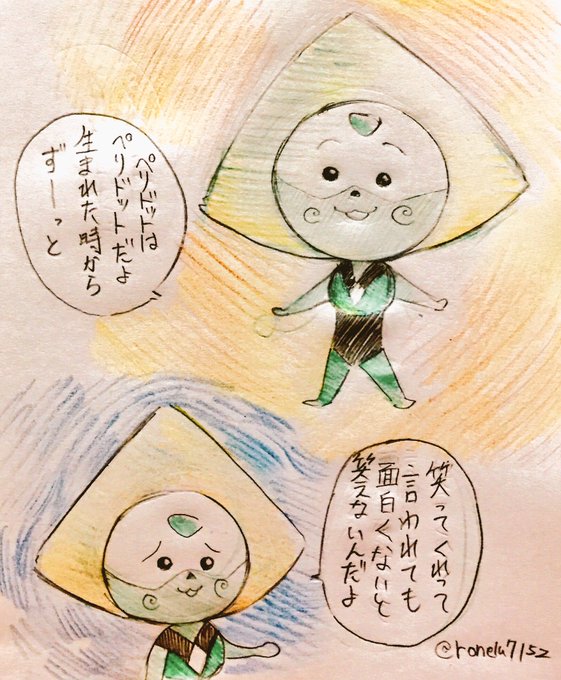 ペリドットは
ペリドットだよ
生まれた時から
ずーっと
笑ってくれって
言われても
面白くないと
笑えないんだよ
@ronelu7152